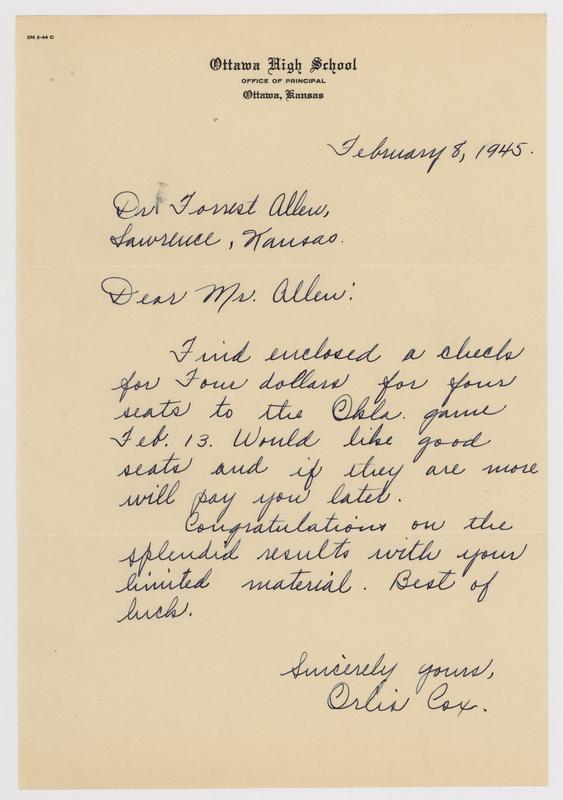 2M 2-44 C
Ottawa High School
OFFICE OF PRINCIPAL
Ottawa, Kansas
February 8, 1945.
Dr. Forrest Allen,
Lawrence, Kansas.
Dear Mr. Allen:
Find enclosed a check
for Four dollars for four
seats to the Okla. game
Feb. 13. Would like good
seats and if they are more
will pay you later.
Congratulations on the
splendid results with your
limited material. Best of
luck.
Sincerely yours,
Orlis Cox.